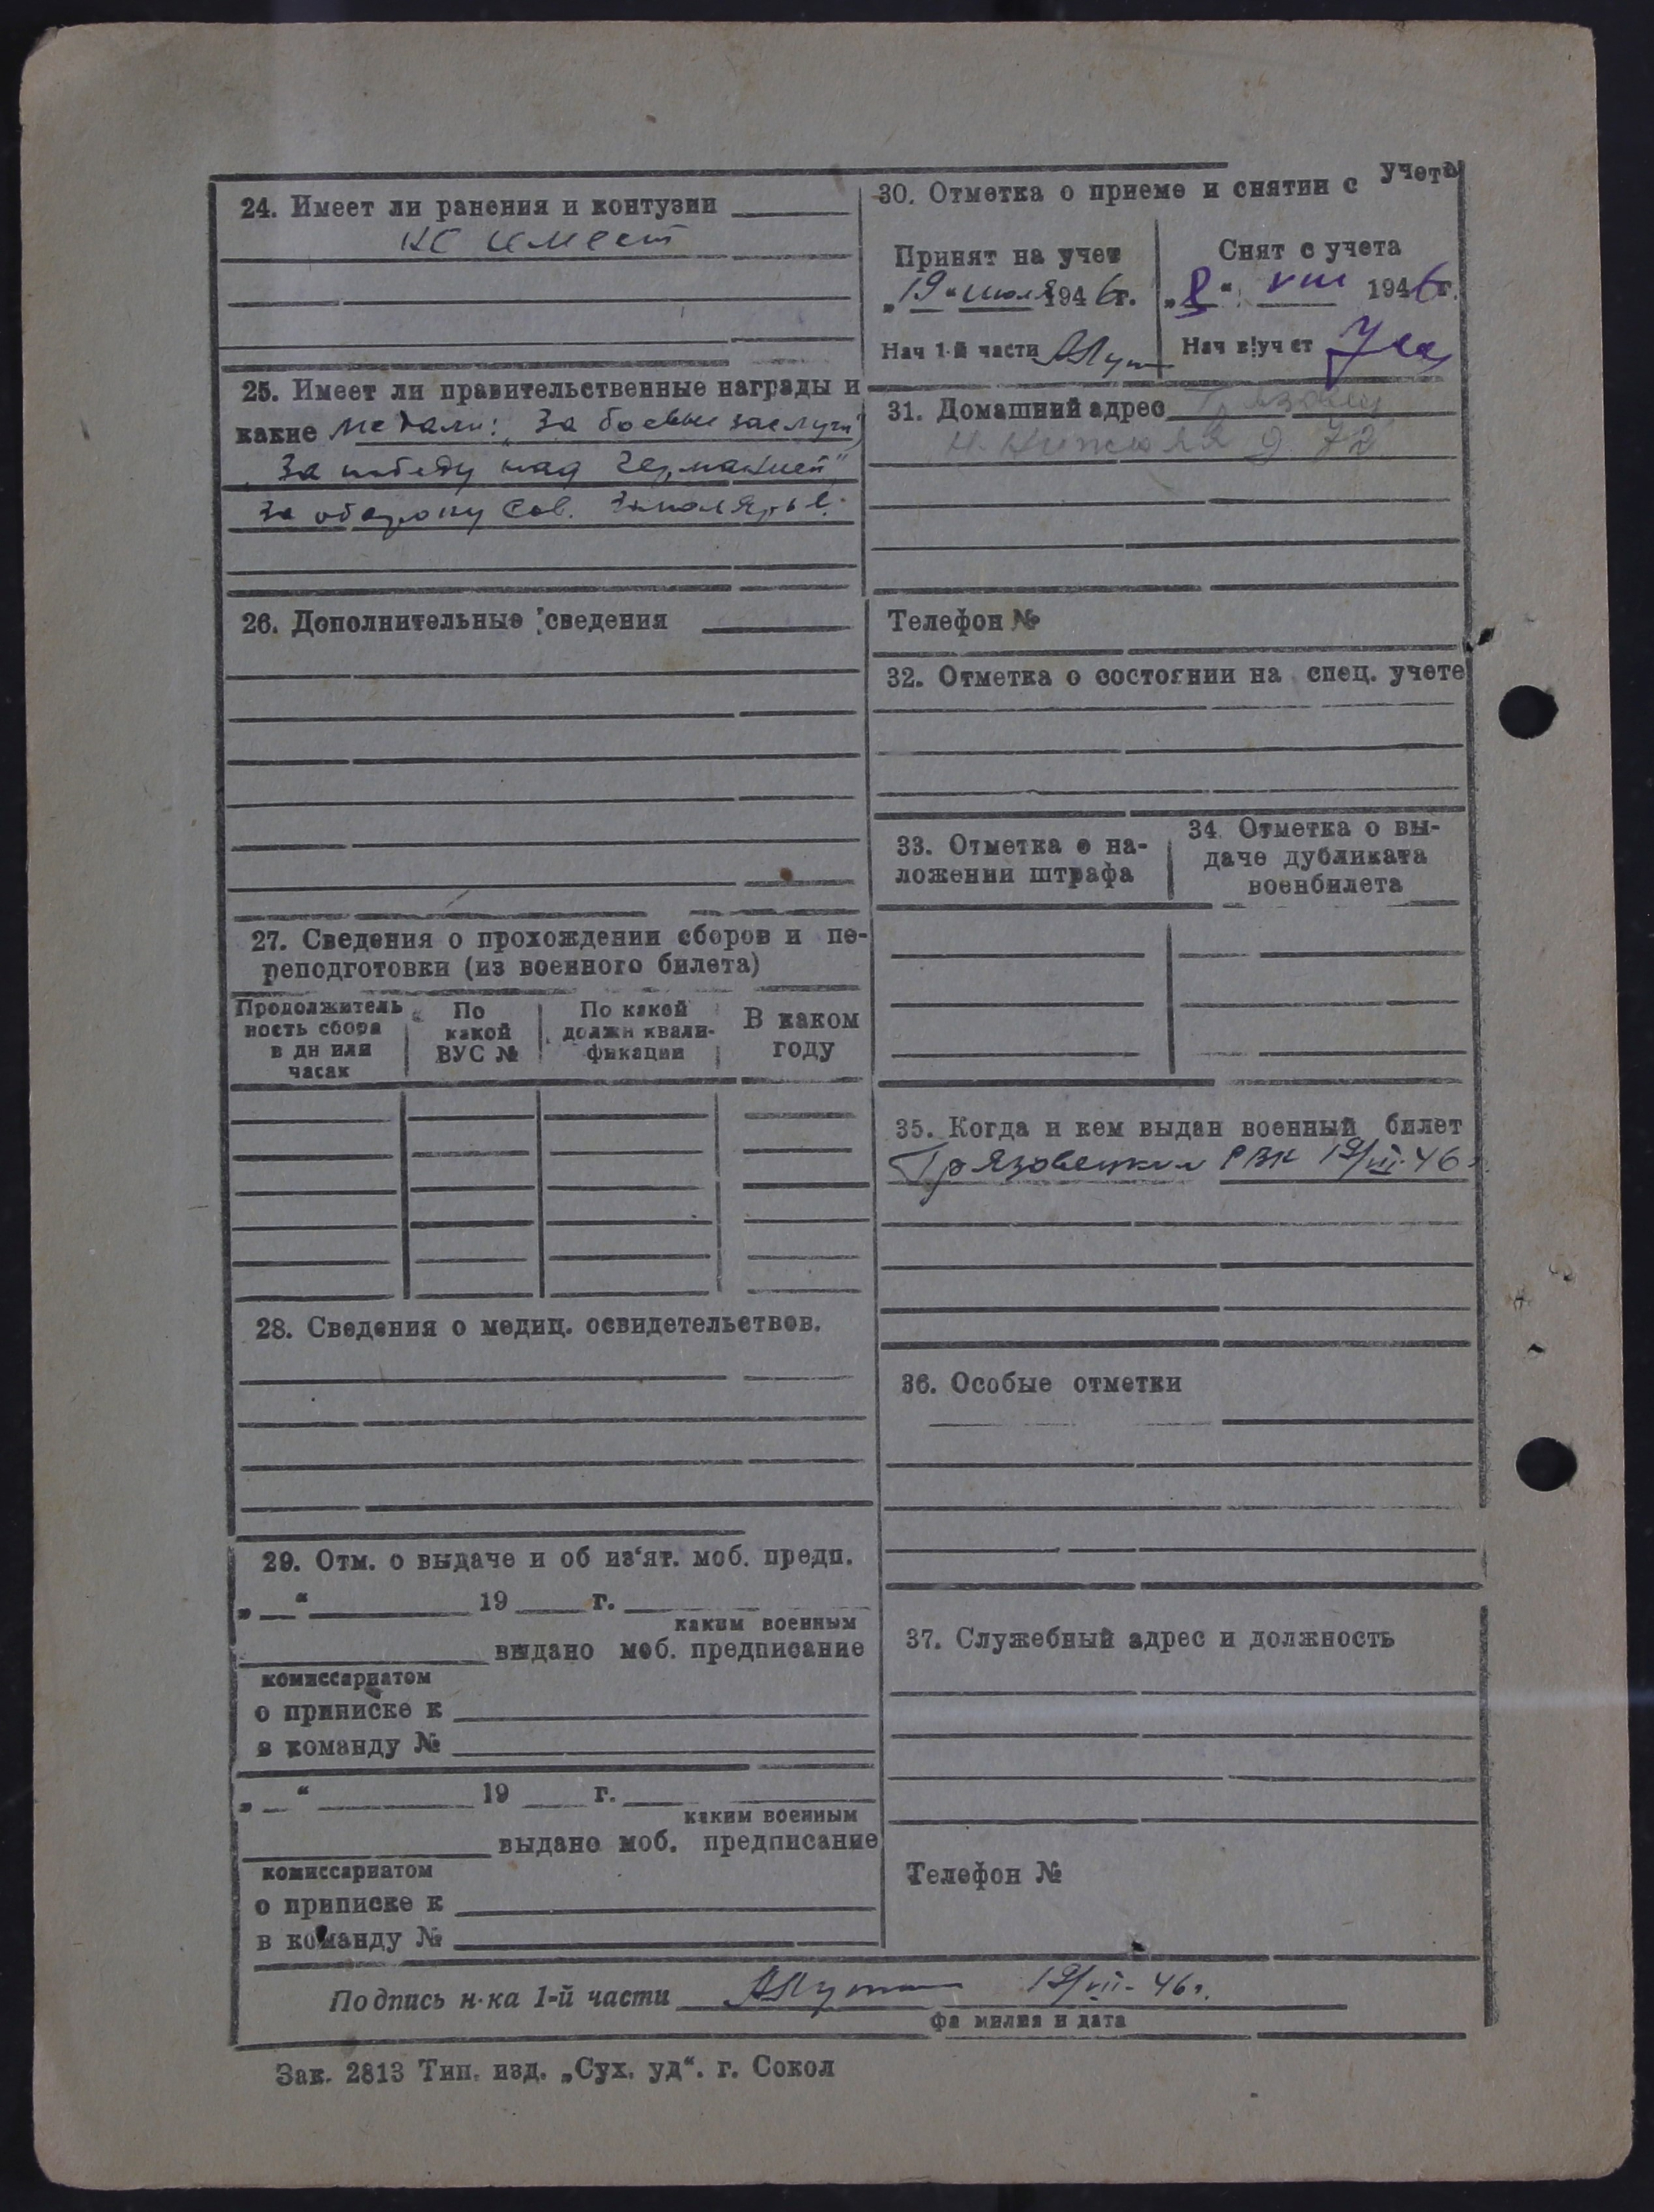 24. Имеет ли ранения и контузии
не имеет
25. Имеет ли правительственные награды и
какие медали: „За боевые заслуги“
„За победу над Германией“
За оборону Сов. Заполярье.
26. Дополнительные сведения
27. Сведения о прохождении сборов и пе-
реподготовки (из военного билета)
Продолжитель
ность сбора
в дн или
часах
По
какой
ВУС №
По какой
должн квали-
фикации
В каком
году
28. Сведения о медиц. освидетельствов.
29. Отм. о выдаче и об из‘ят. моб. предп.
„ “ 19 г.
каким военным
выдано моб. предписание
комиссариатом
о приписке к
в команду №
„ “ 19 г.
каким военным
выдано моб. предписание
комиссариатом
о приписке к
в команду №
30. Отметка о приеме и снятии с учета
Принят на учет
„19“ июля 1946г.
Нач 1-й части
Снят с учета
„8“ VIII 1946г.
Нач в|учет
31. Домашний адрес Грязовец
д. 72
Телефон №
32. Отметка о состоянии на спец. учете
33. Отметка о на-
ложении штрафа
34. Отметка о вы-
даче дубликата
военбилета
35. Когда и кем выдан военный билет
Грязовецким РВК 19/VII-46г.
36. Особые отметки
37. Служебный адрес и должность
Телефон №
Подпись н-ка 1-й части 19/VII-46г.
фамилия и дата
Зак. 2813 Тип. изд. „Сух. уд“. г. Сокол